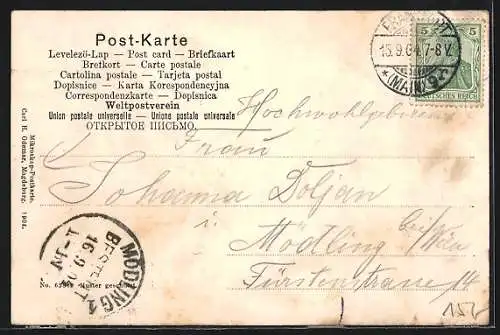 Post-Karte
Levelezö-Lap — Post card — Briefkaart
Brefkort — Carte postale
Cartolina postale — Tarjeta postal
Dopisnice — Karta Korespondencyjna
Correspondenzkarte — Dopisnica
Weltpostverein
Union postale universelle — Unione postale universale
ОТКРЫТОЕ ПИСЬМО.
5 5
DEUTSCHES REICH
15.9.04.7-8V.
*(MAIN)9*
Hochwohlgeboren
Frau
Johanna Doljan
i
Mödling bei Wien
Fürstenstrasse 14
MÖDLING 1
BESTELLT
16.9.0
Mikroskop-Postkarte.
Carl H. Odemar, Magdeburg. 1902.
No. Muster geschützt
152